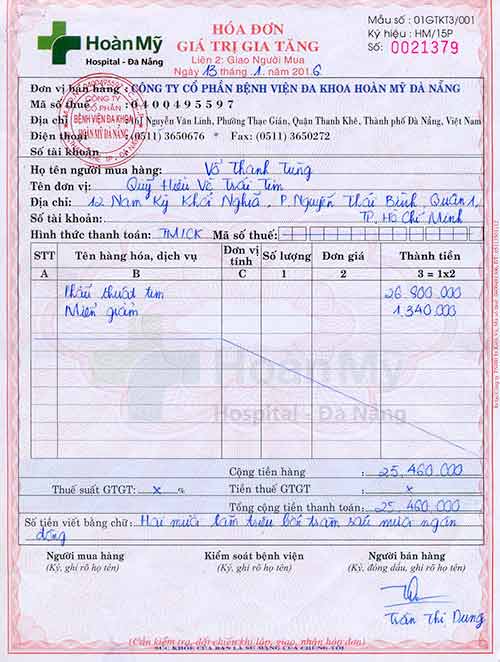 HÓA ĐƠN
GIÁ TRỊ GIA TĂNG
Liên 2: Giao Người Mua
Ngày 13 tháng 1 năm 2016
Mẫu số : 01GTKT3/001
Ký hiệu : HM/15P
Số: 0021379
Hoàn Mỹ
Hospital - Đà Nẵng
Đơn vị bán hàng : CÔNG TY CỔ PHẦN BỆNH VIỆN ĐA KHOA HOÀN MỸ ĐÀ NẴNG
Mã số thuế : 0400495597
Địa chỉ : Nguyễn Văn Linh, Phường Thạc Gián, Quận Thanh Khê, Thành phố Đà Nẵng, Việt Nam
Điện thoại : (0511) 3650676 * Fax: (0511) 3650272
Số tài khoản
CÔNG TY
CỔ PHẦN
BỆNH VIỆN ĐA KHOA
HOÀN MỸ ĐÀ NẴNG
Họ tên người mua hàng: Võ Thanh Tùng
Tên đơn vị: Quỹ Hiểu Về Trái Tim
Địa chỉ: 12 Nam Kỳ Khởi Nghĩa, P. Nguyễn Thái Bình, Quận 1,
Số tài khoản: TP. Hồ Chí Minh
Hình thức thanh toán: TM/CK Mã số thuế:
STT Tên hàng hóa, dịch vụ Đơn vị tính Số lượng Đơn giá Thành tiền
A B C 1 2 3 = 1x2
Phẫu thuật tim 26.800.000
Miễn giảm 1.340.000
Hoàn Mỹ
Hospital - Đà Nẵng
Cộng tiền hàng : 25.460.000
Thuế suất GTGT: x % Tiền thuế GTGT : x
Tổng cộng tiền thanh toán: 25.460.000
Số tiền viết bằng chữ: Hai mươi lăm triệu bốn trăm sáu mươi ngàn
đồng
Người mua hàng Kiểm soát bệnh viện Người bán hàng
(Ký, ghi rõ họ tên) (Ký, ghi rõ họ tên) (Ký, đóng dấu, ghi rõ họ tên)
Trần Thị Dung
(Cần kiểm tra, đối chiếu khi lập, giao, nhận hóa đơn)
SỨC KHỎE CỦA BẠN LÀ SỨ MẠNG CỦA CHÚNG TÔI